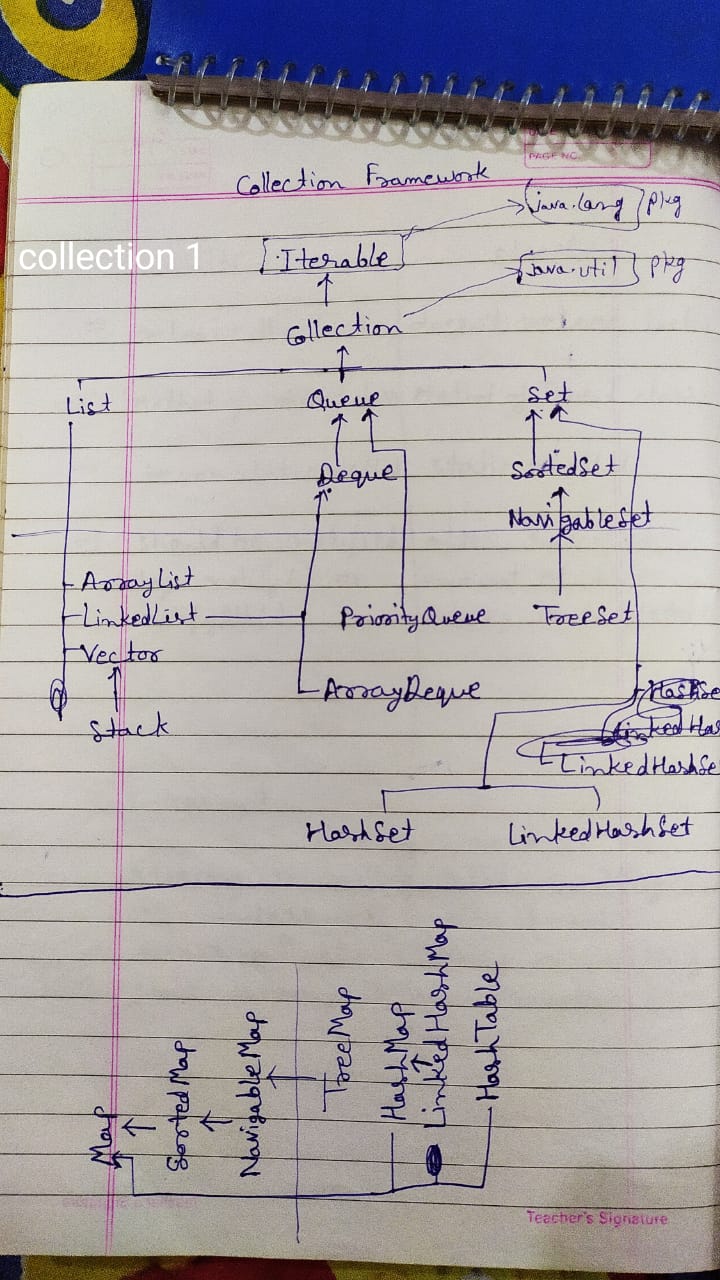 PAGE NO.
Collection Framework
java.lang pkg
collection 1
Iterable
java.util pkg
Collection
List Queue Set
Deque SortedSet
NavigableSet
ArrayList
LinkedList PriorityQueue TreeSet
Vector
ArrayDeque HashSe
Stack Linked Has
LinkedHashSe
HashSet LinkedHashSet
Map
SortedMap
NavigableMap
TreeMap
HashMap
LinkedHashMap
HashTable
Teacher's Signature